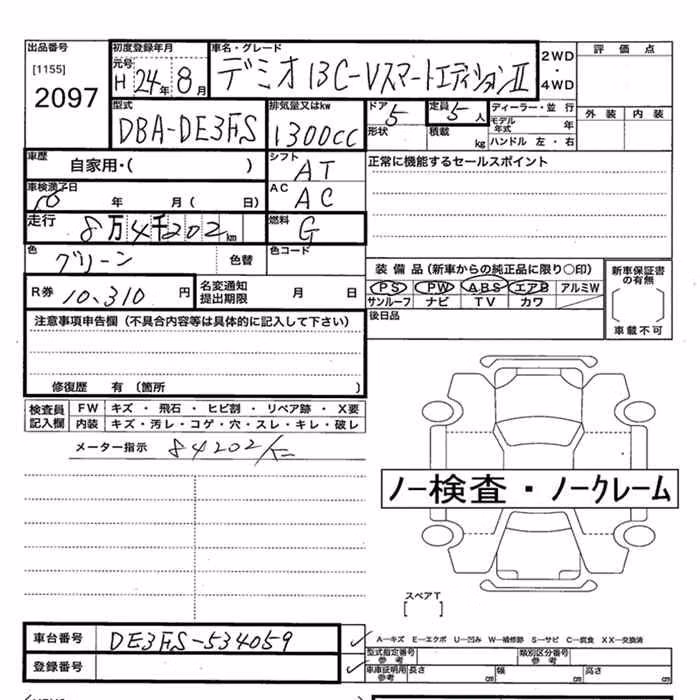 出品番号
[1155]
2097
初度登録年月
元号
H 24年 8月
車名・グレード
デミオ 13C-Vスマートエディション II
2WD
・
4WD
評 価 点
外 装 内 装
型式
DBA-DE3FS
排気量又はkw
1300cc
ドア
5
形状
定員
5 人
積載
kg
ディーラー・並 行
モデル年式 年
ハンドル 左 ・ 右
車歴
自家用・( )
シフト
AT
正常に機能するセールスポイント
車検満了日
年 月( 日)
AC
AC
走行
8万4千202km
燃料
G
色
グリーン
色替
色コード
R券
10,310 円
名変通知
提出期限
月 日
装 備 品 (新車からの純正品に限り○印)
PS PW ABS エアB アルミW
サンルーフ ナビ TV カワ
新車保証書
の有無
車載不可
後日品
注意事項申告欄 (不具合内容等は具体的に記入して下さい)
修復歴 有 (箇所 )
検査員
記入欄
FW キズ ・ 飛石 ・ ヒビ割 ・ リペア跡 ・ X要
内装 キズ・汚レ・コゲ・穴・スレ・キレ・破レ
メーター指示 84202km
ノー検査・ノークレーム
スペアT
[ ]
車台番号 DE3FS-534059
登録番号
A―キズ E―エクボ U―凹み W―補修跡 S―サビ C―腐食 XX―交換済
型式指定番号
参考
類別区分番号
参考
車庫証明用
参考
長さ cm 幅 cm 高さ cm